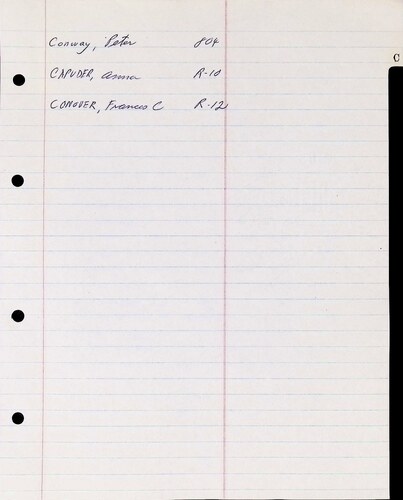 C
Conway, Peter 804
CAPUDER, Anna R-10
CONOVER, Frances C R-12